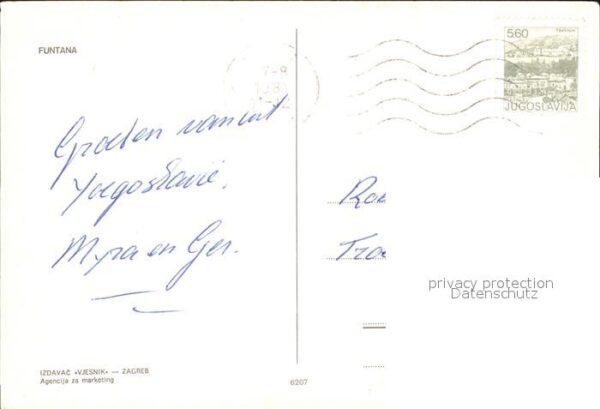 FUNTANA
5.60
JUGOSLAVIJA
Groeten vanuit
Joegoslavië.
Myra en Ger.
Rob
Tra
privacy protection
Datenschutz
IZDAVAČ »VJESNIK« — ZAGREB
Agencija za marketing
6207